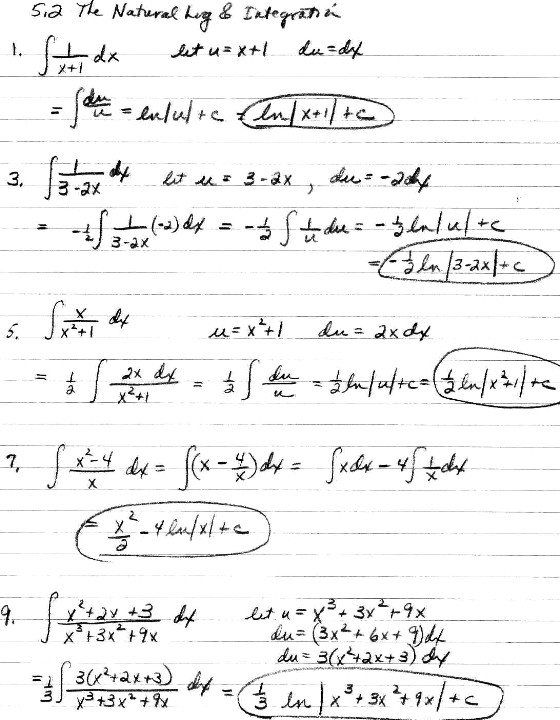 5.2 The Natural Log & Integration
1. ∫ 1/(x+1) dx let u = x+1 du = dx
= ∫ du/u = ln|u| + c = ln|x+1| + c
3. ∫ 1/(3-2x) dx let u = 3-2x, du = -2dx
= -1/2 ∫ 1/(3-2x) (-2) dx = -1/2 ∫ 1/u du = -1/2 ln|u| + c
= -1/2 ln|3-2x| + c
5. ∫ x/(x²+1) dx u = x²+1 du = 2x dx
= 1/2 ∫ 2x dx/(x²+1) = 1/2 ∫ du/u = 1/2 ln|u| + c = 1/2 ln|x²+1| + c
7. ∫ (x²-4)/x dx = ∫(x - 4/x) dx = ∫x dx - 4∫ 1/x dx
= x²/2 - 4 ln|x| + c
9. ∫ (x²+2x+3)/(x³+3x²+9x) dx let u = x³+3x²+9x
du = (3x²+6x+9)dx
du = 3(x²+2x+3)dx
= 1/3 ∫ 3(x²+2x+3)/(x³+3x²+9x) dx = 1/3 ln|x³+3x²+9x| + c